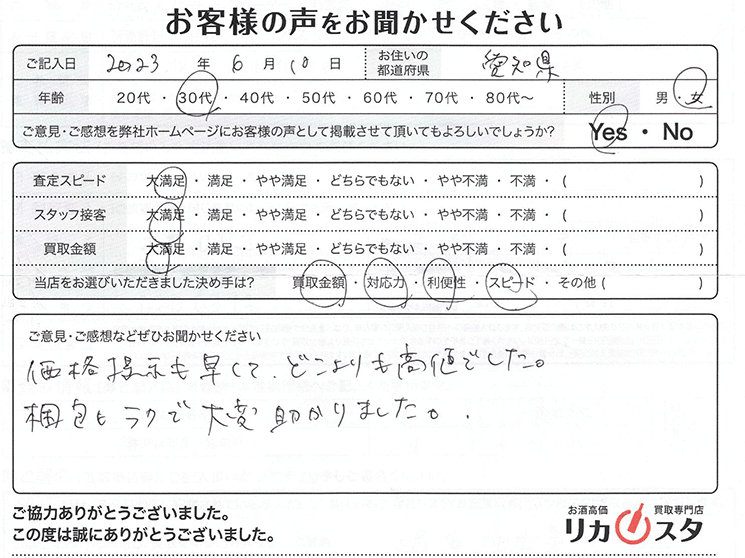 お客様の声をお聞かせください
ご記入日 2023 年 6 月 10 日 お住いの都道府県 愛知県
年齢 20代 ・ 30代 ・ 40代 ・ 50代 ・ 60代 ・ 70代 ・ 80代〜 性別 男 ・ 女
ご意見・ご感想を弊社ホームページにお客様の声として掲載させて頂いてもよろしいでしょうか? Yes ・ No
査定スピード 大満足 ・ 満足 ・ やや満足 ・ どちらでもない ・ やや不満 ・ 不満 ・ ( )
スタッフ接客 大満足 ・ 満足 ・ やや満足 ・ どちらでもない ・ やや不満 ・ 不満 ・ ( )
買取金額 大満足 ・ 満足 ・ やや満足 ・ どちらでもない ・ やや不満 ・ 不満 ・ ( )
当店をお選びいただきました決め手は? 買取金額 ・ 対応力 ・ 利便性 ・ スピード ・ その他 ( )
ご意見・ご感想などぜひお聞かせください
価格提示も早くて、どこよりも高値でした。
梱包もラクで大変助かりました。
ご協力ありがとうございました。
この度は誠にありがとうございました。
お酒高価 買取専門店
リカスタ